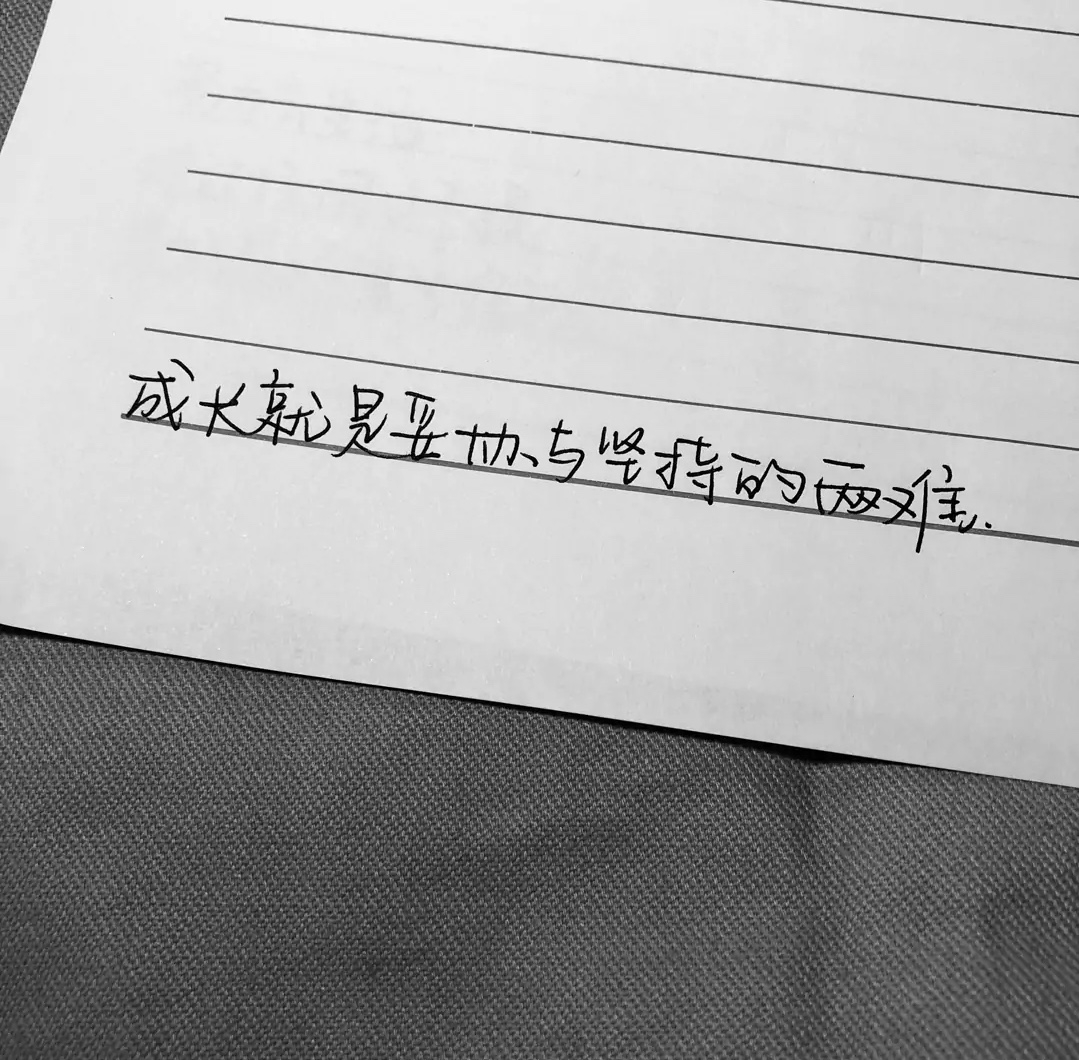 成长就是妥协与坚持的两难.